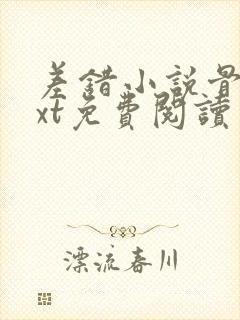 差錯小說最
xt免費閱讀
漂流春川